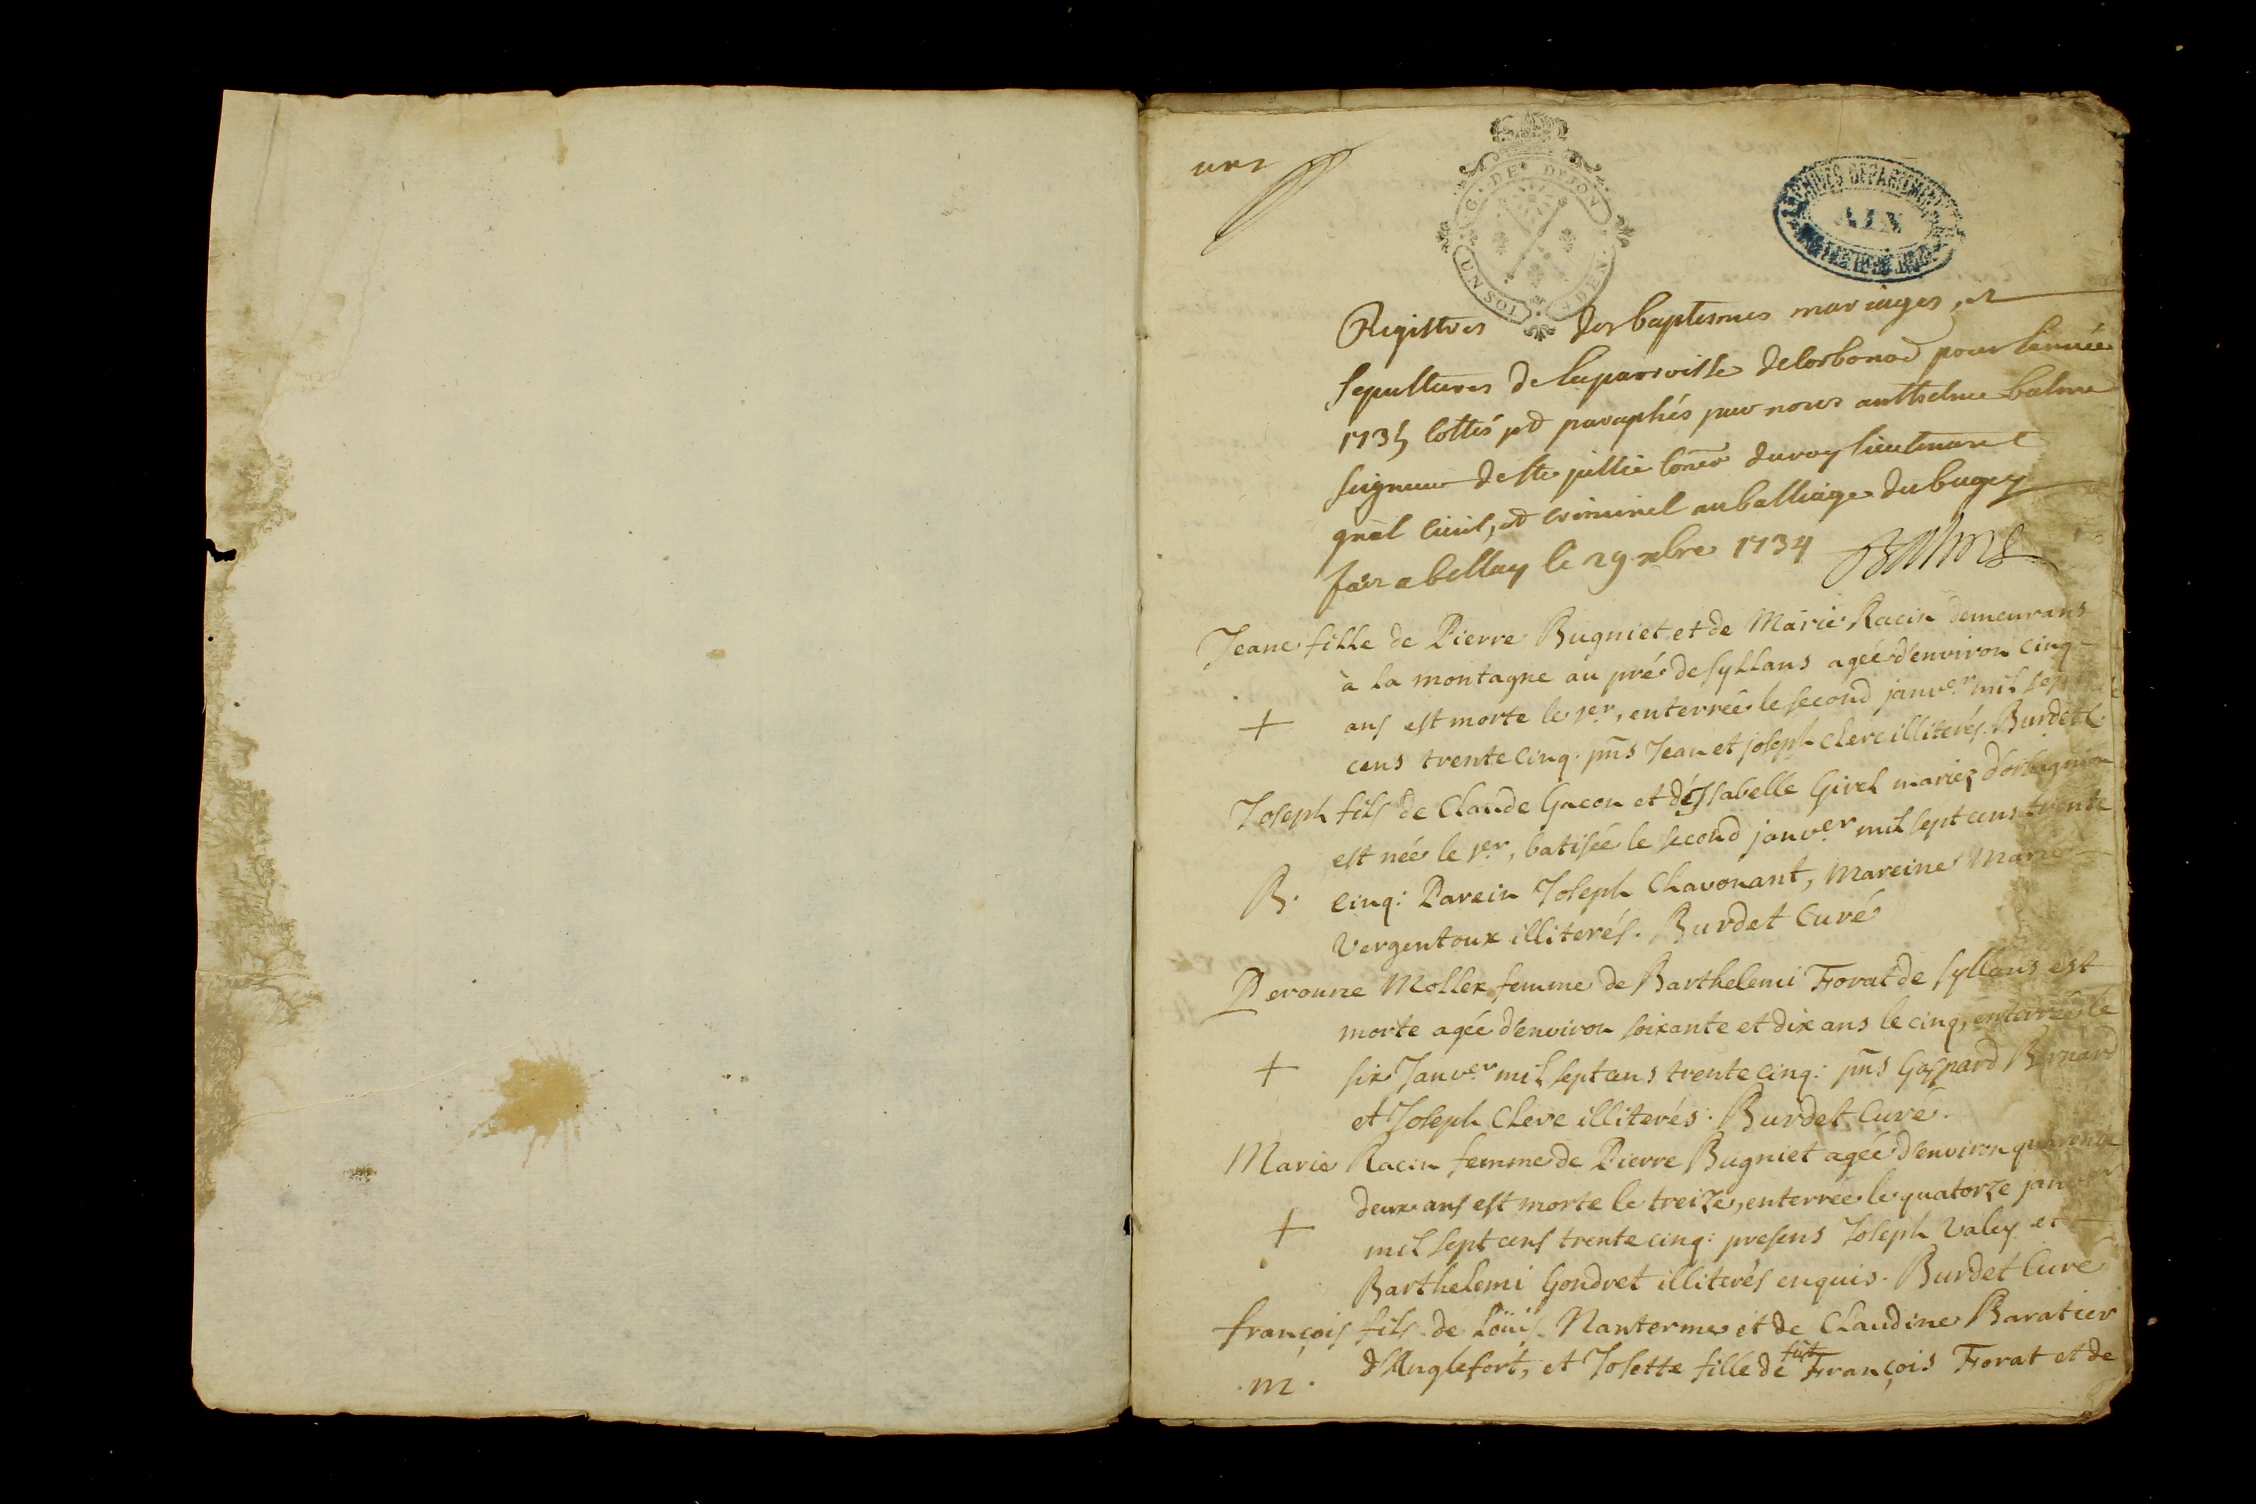 une
G. DE DIJON
UN SOL 4 DEN.
ARCHIVES DEPARTEMENTALES
AIN
Registres des baptesmes mariages, et
sepultures de la parroisse de Corbonod pour l'année
1735 cottés et paraphés par nous anthelme balme
seigneur de Ste jullie Coner du roy lieutenant
gnal civil, et criminel au balliage du bugey
fait a bellay le 29 xbre 1734 Balme
Jeane fille de Pierre Bugniet et de Marie Racin demeurans
à la montagne au pré de syllans agée d'environ cinq
+ ans est morte le 1er, enterrée le second janver mil sept
cens trente cinq. pns Jean et joseph Clerc illiterés. Burdet C.
Joseph fils de Claude Gacon et d'Issabelle Girel mariez d'orbagnion
est née le 1er, batisée le second janver mil sept cens trente
B. cinq: Parein Joseph Chavonant, Mareine Marie
Vergentoux illiterés. Burdet Curé
Peronne Mollex femme de Barthelemi Forat de syllans est
morte agée d'environ soixante et dix ans le cinq, enterrée le
+ six Janver mil sept cens trente cinq: pns Gaspard Bernard
et Joseph Clerc illiterés. Burdet Curé.
Marie Racin femme de Pierre Bugniet agée d'environ quarente
deux ans est morte le treize, enterrée le quatorze janver
+ mil sept cens trente cinq: presens Joseph Valey et
Barthelemi Gondret illiterés enquis. Burdet Curé
françois fils de Loüis Nanterme et de Claudine Baratier
.m. d'Anglefort, et Josette fille de fût François Forat et de